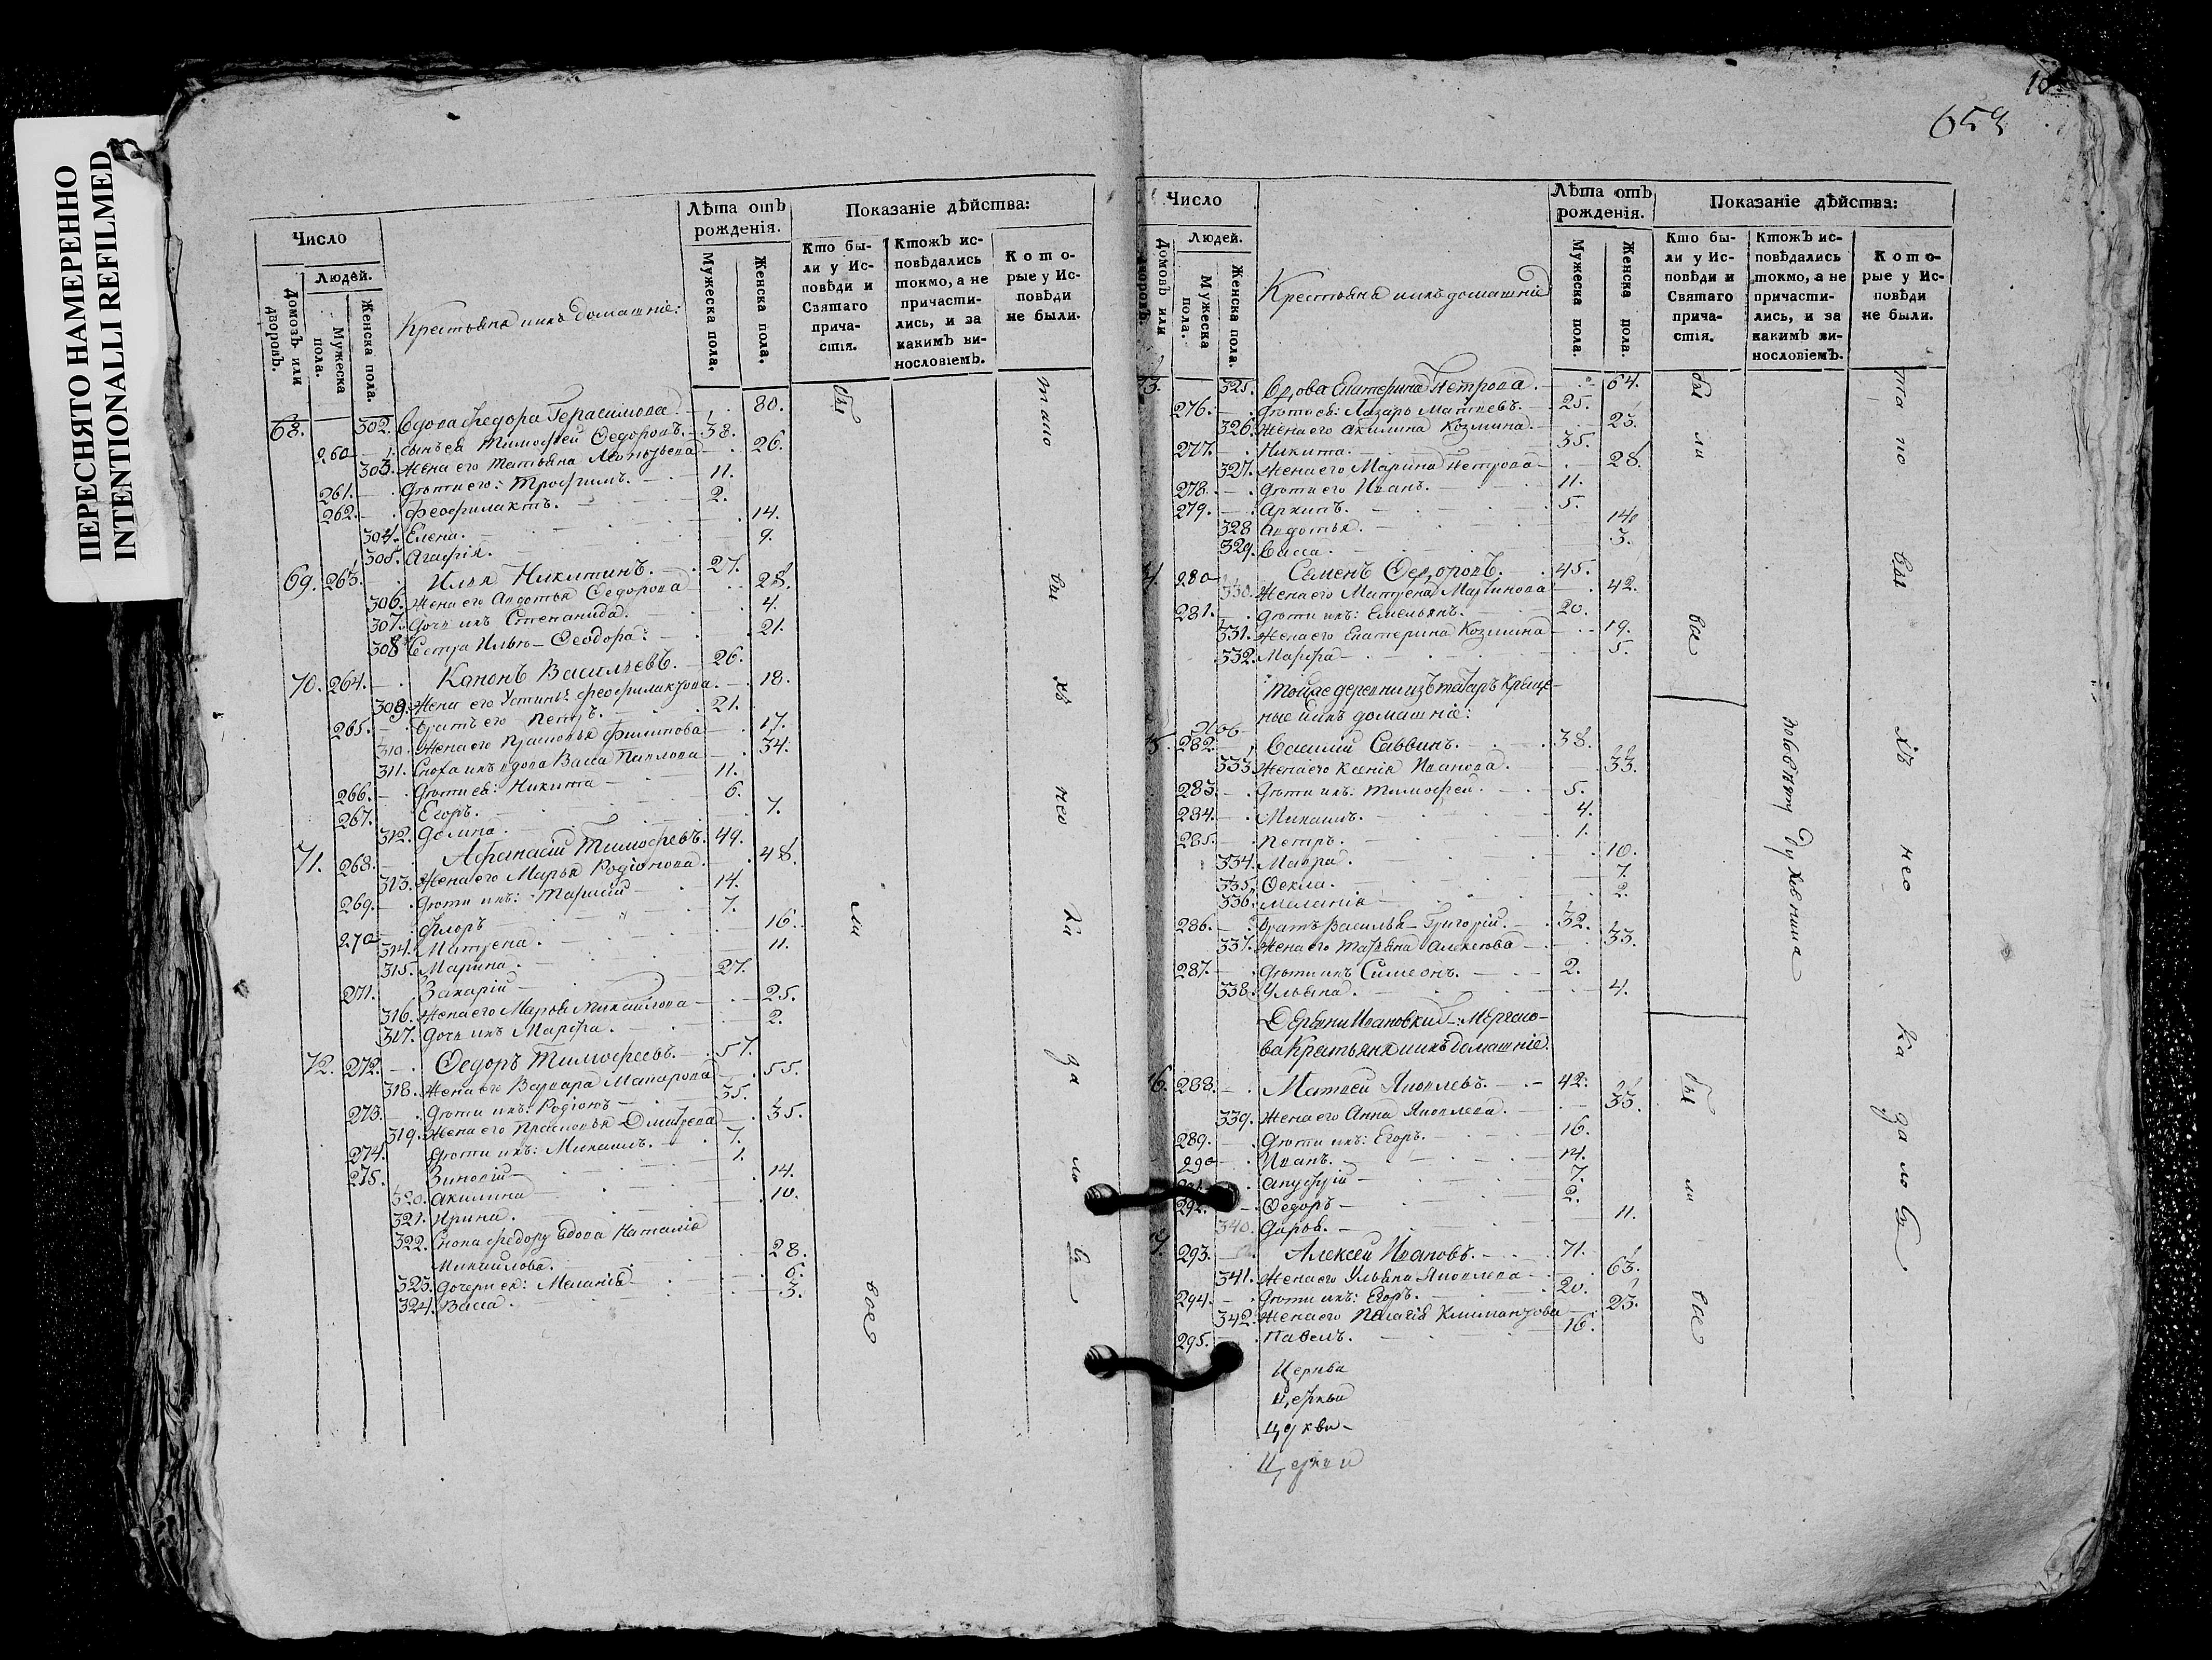 ПЕРЕСНЯТО НАМЕРЕННО
INTENTIONALLI REFILMED
Число
Людей.
Домовъ или дворовъ.
Мужеска пола.
Женска пола.
Крестьяна ихъ домашніе:
Лѣта отъ рожденія.
Мужеска пола.
Женска пола.
Показаніе дѣйства:
Кто бы-
ли у Ис-
повѣди и
Святаго
прича-
стія.
Ктожъ ис-
повѣдались
токмо, а не
причасти-
лись, и за
какимъ ви-
нословіемъ.
Кото-
рые у Ис-
повѣди
не были.
68. 302. Вдова Федора Герасимова. 80.
260. Сынъ ея Тимофей Федоровъ. 38.
303. Жена его Татьяна 26.
261. Дѣти его: Трофимъ. 11.
262. Феофилактъ. 2.
304. Елена. 14.
305. Агафія. 9.
69. 263. Илья Никитинъ. 27.
306. Жена его Авдотья Федорова 28.
307. Дочь ихъ Степанида. 4.
308. Сестра Ильѣ Феодора: 21.
70. 264. Канонъ Васильевъ. 26.
309. Жена его Устинья Феофилактова. 18.
265. Братъ его Петръ. 21.
310. Жена его Прасковья Филипова 17.
311. Сноха ихъ вдова Васса Павлова 34.
266. Дѣти ея: Никита 11.
267. Егоръ. 6.
312. Домна. 7.
71. 268. Афанасій Тимофеевъ. 49.
313. Жена его Марья Родіонова. 48.
269. Дѣти ихъ: 14.
270. Флоръ 7.
314. Матрена. 16.
315. Марина. 11.
271. Захарій 27.
316. Жена его Марья Михайлова 25.
317. Дочь ихъ Марфа. 2.
72. 272. Федоръ Тимофеевъ. 57.
318. Жена его Варвара Макарова 55.
273. Дѣти ихъ: Родіонъ 35.
319. Жена его Прасковья Дмитрева 35.
274. Дѣти ихъ: Михаилъ. 7.
275. Зиновій 1.
320. Акилина 14.
321. Ирина. 10.
322. Сноха Федору вдова Наталія
Михайлова. 28.
323. Дочери ея: Меланія 6.
324. Васса. 3.
бы
ли
все
тако
вы
хъ
не
ка
да
ло
съ
653
Число
Людей.
Домовъ или дворовъ.
Мужеска пола.
Женска пола.
Крестьяна ихъ домашніе
Лѣта отъ рожденія.
Мужеска пола.
Женска пола.
Показаніе дѣйства:
Кто бы-
ли у Ис-
повѣди и
Святаго
прича-
стія.
Ктожъ ис-
повѣдались
токмо, а не
причасти-
лись, и за
какимъ ви-
нословіемъ.
Кото-
рые у Ис-
повѣди
не были.
73. 325. Вдова Екатерина Петрова. 64.
276. Дѣти ея: Лазарь Матвеевъ. 25.
326. Жена его Акилина Козмина. 23.
277. Никита. 35.
327. Жена его Марина Петрова 28.
278. Дѣти его Иванъ. 11.
279. Архипъ. 5.
328. Авдотья. 14.
329. Васса. 3.
280. Семенъ Федоровъ. 45.
330. Жена его Матрена Мартинова 42.
281. Дѣти ихъ: Емельянъ. 20.
331. Жена его Екатерина Козмина 19.
332. Марфа 5.
Тойже деревни изъ татаръ креще-
ные и ихъ домашніе:
282. Василій Саввинъ. 38.
333. Жена его Ксенія Иванова. 33.
283. Дѣти ихъ: Тимофей. 5.
284. Михаилъ. 4.
285. Петръ. 1.
334. Мавра. 10.
335. Фекла. 7.
336. Меланія 2.
286. Братъ Василья Григорій. 32.
337. Жена его Татьяна Алексѣева 33.
287. Дѣти ихъ Симеонъ. 2.
338. Ульяна. 4.
Деревни Ивановки
Крестьяня ихъ домашніе.
288. Матвей Яковлевъ. 42.
339. Жена его Анна Яковлева. 33.
289. Дѣти ихъ: Егоръ. 16.
290. Иванъ. 14.
291. 7.
292. Федоръ 2.
340. Дарья. 11.
293. Алексей Ивановъ. 71.
341. Жена его Ульяна Яковлева 63.
294. Дѣти ихъ: Егоръ. 20.
342. Жена его Пелагія 23.
295. Павелъ. 16.
Церква
Церкви
Церкви
Церкви
бы
ли
все
бы
ли
все
та
ко
вы
хъ
не
ка
да
ло
съ